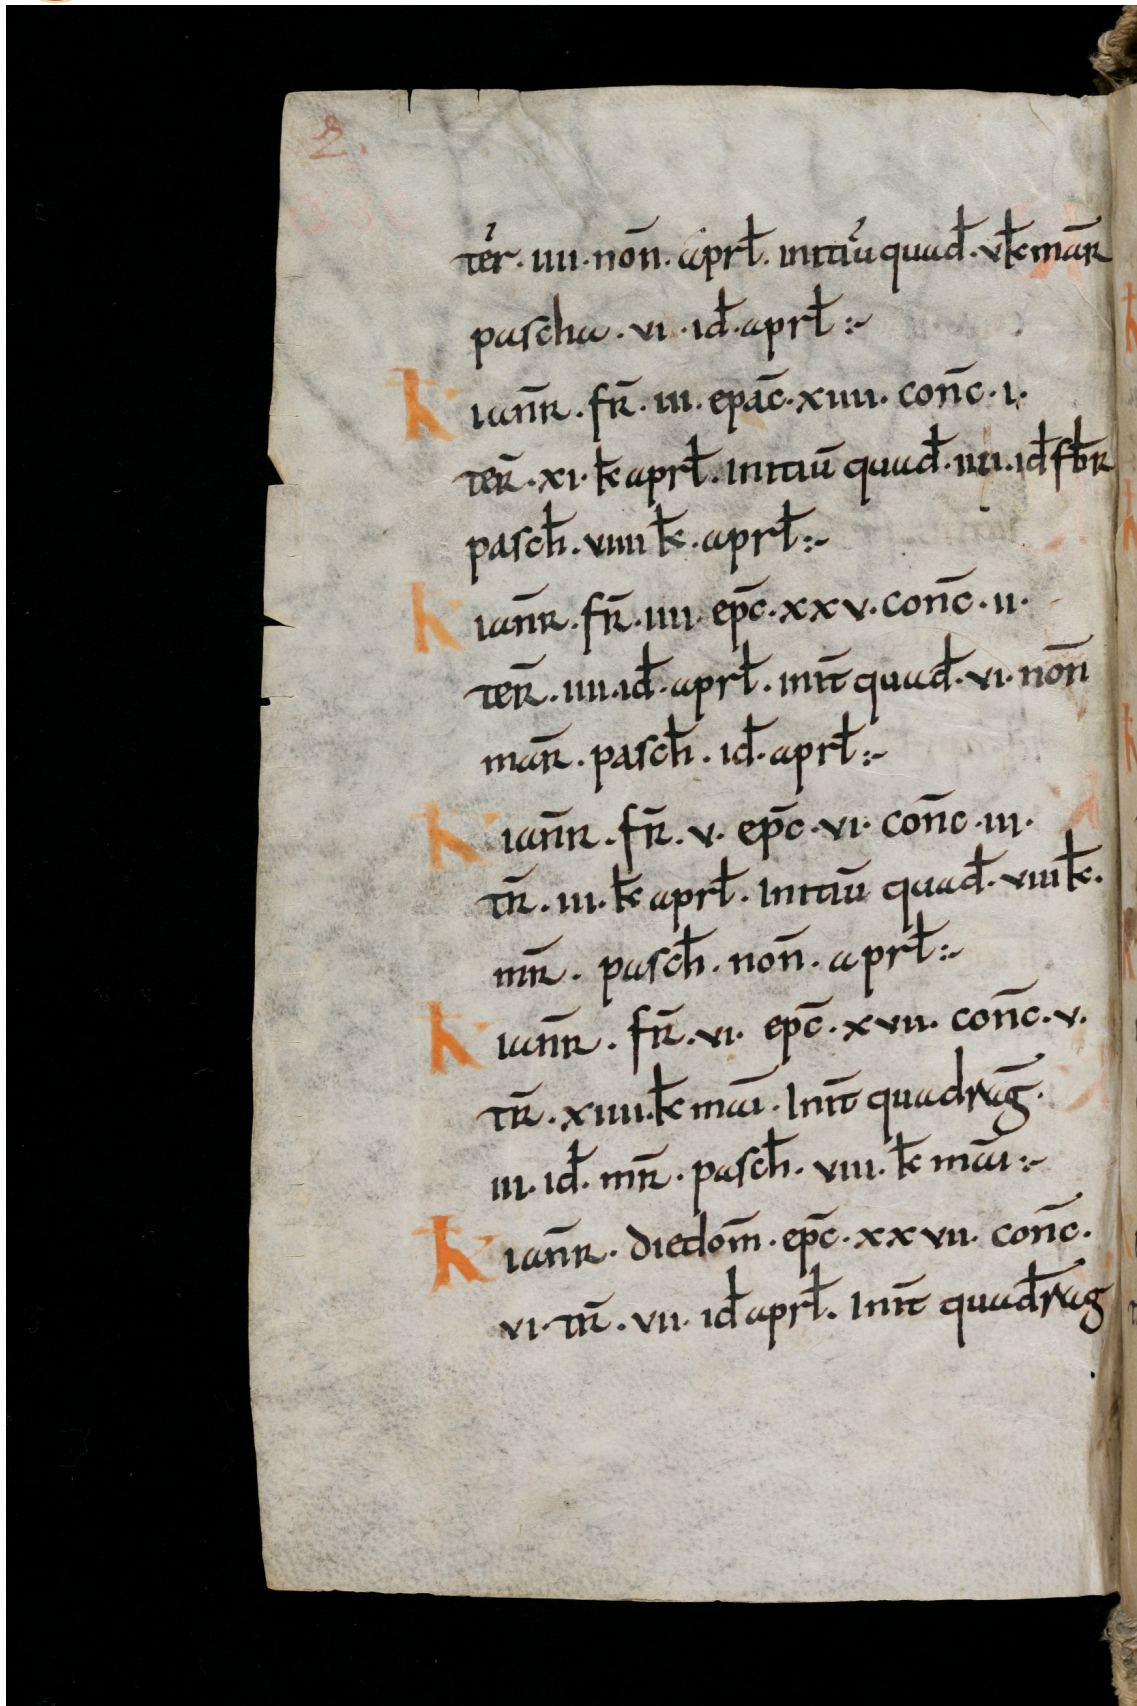 2.
ter̄. iiii. non̄. aprł. initiū quad̄. v ꝃ mar̄
pascha. vi. id̄. aprł :~
ꝃ ian̄r. fr̄. iii. epac̄. xiiii. conc̄. i.
ter̄. xi. ꝃ aprł. Initiū quad̄. iiii. id̄ fƀr
pascħ. viiii ꝃ. aprł :~
ꝃ ian̄r. fr̄. iiii. ep̄c. xxv. conc̄. ii.
ter̄. iiii. id̄. aprł. init̄ quad̄. vi. non̄
mar̄. pascħ. id̄. aprł :~
ꝃ ian̄r. fr̄. v. ep̄c. vi. conc̄. iii.
tr̄. iii. ꝃ aprł. Initiū quad̄. viii ꝃ.
mr̄. pascħ. non̄. aprł :~
ꝃ ian̄r. fr̄. vi. ep̄c. xvii. conc̄. v.
tr̄. xiiii. ꝃ mai̅. Init̄ quadrag̅.
iii. id̄. mr̄. pascħ. viii. ꝃ mai̅ :~
ꝃ ian̄r. die dom̄. ep̄c. xxvii. conc̄.
vi. tr̄. vii. id̄ aprł. Init̄ quad̄rag